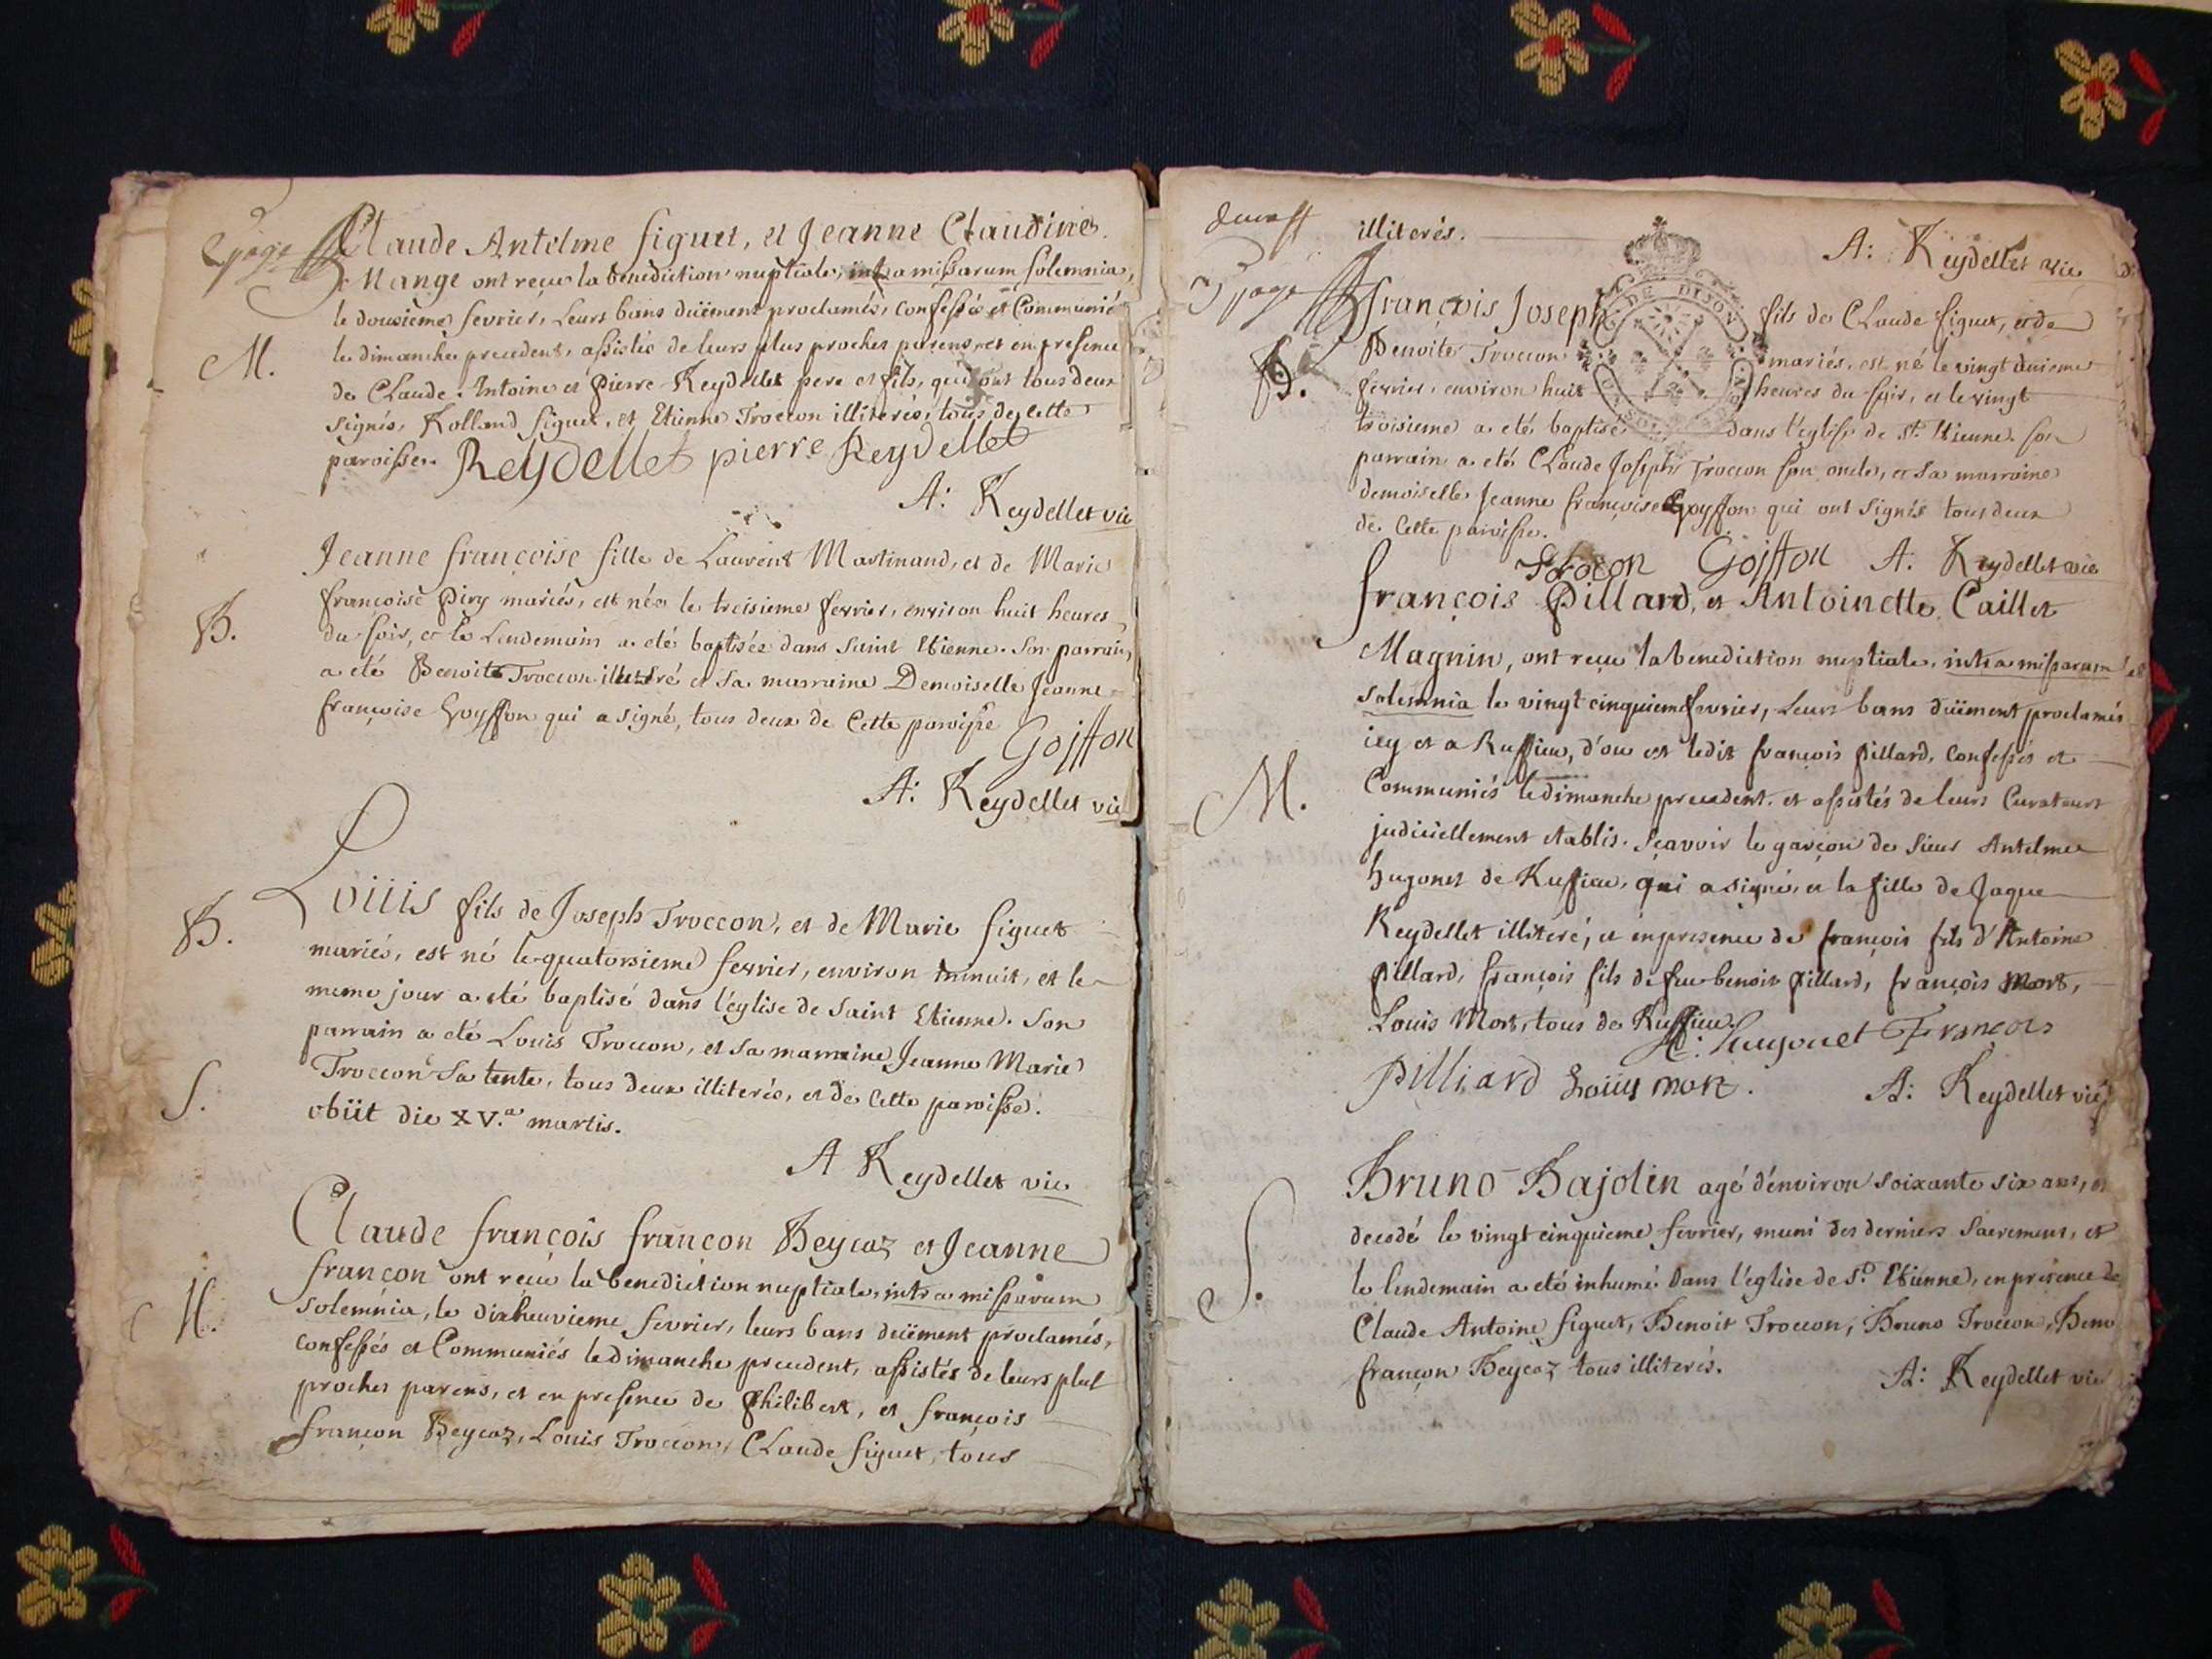 2 page
Claude Antelme figuet, et Jeanne Claudine
Mange ont reçu la benediction nuptiale, intra missarum solemnia,
le douxieme fevrier, Leurs bans düement proclamés, Confessés et Communié
le dimanche precedent, assistés de leurs plus proches parens, et en presence
M.
de Claude Antoine et Pierre Reydellet pere et fils, qui ont tous deux
signés, Rolland figuet, et Etienne Troccon illiterés, tous de cette
paroisse. Reydellet pierre Reydellet
A: Reydellet vic
Jeanne françoise fille de Laurent Martinand, et de Marie
françoise Piry mariés, est née le treisieme fevrier, environ huit heures
B.
du soir, et le Lendemain a eté baptisée dans Saint Etienne. Son parrain,
a eté Benoit Troccon illiteré et Sa marraine Demoiselle Jeanne
françoise Goyffon qui a signé, tous deux de Cette paroisse Goiffon
A: Reydellet vic
Loüis fils de Joseph Troccon, et de Marie figuet
B.
mariés, est né le quatorsieme fevrier, environ minuit, et le
meme jour a eté baptisé dans l'église de Saint Etienne. Son
parrain a eté Louis Troccon, et Sa marraine Jeanne Marie
Troccon Sa tente, tous deux illiterés, et de Cette paroisse.
S.
obiit die XV.a martis.
A Reydellet vic
Claude françois françon Beycoz et Jeanne
françon ont reçu la benediction nuptiale, intra missarum
M.
solemnia, le dixneuvieme fevrier, leurs bans deüement proclamés,
confessés et Communiés le dimanche precedent, assistés de leurs plus
proches parens, et en presence de Philibert, et françois
françon Beycoz, Louis Troccon, Claude figuet, tous
illiterés.
A: Reydellet vic
3 page
DE DIJON
françois Joseph fils de Claude figuet, et de
Benoite Troccon mariés, est né le vingt duieme
B.
fevrier, environ huit heures du soir, et le vingt
troisieme a eté baptisé dans l'eglise de St. Etienne. son
parrain a eté Claude Joseph Troccon son oncle, et Sa marraine
demoiselle Jeanne françoise Goyffon qui ont signés tous deux
de Cette paroisse.
Trocon Goiffon A: Reydellet vic
françois Pillard, et Antoinette Caillet
Magnin, ont reçu la benediction nuptiale, intra missarum
solemnia le vingt cinquieme fevrier, Leurs bans düement proclamés
icy et a Ruffieu, d'ou est ledit françois Pillard, Confessés et
M.
Communiés le dimanche precedent. et assistés de leurs Curateurs
judiciellement etablis. Sçavoir le garçon de Sieur Antelme
hugonet de Ruffieu, qui a signé, et la fille de Jaque
Reydellet illiteré, et en presence de françois fils d'Antoine
Pillard, françois fils de feu benoit Pillard, françois Mort,
Louis Mort, tous de Ruffieu.
A: hugonet François
pilliard Loüiy mort.
A: Reydellet vic
Bruno Bajolin agé d'environ soixante six ans,
decedé le vingt cinquieme fevrier, muni des derniers Sacremens, et
S.
le lendemain a eté inhumé dans l'église de St Etienne, en presence de
Claude Antoine figuet, Benoit Troccon, Bruno Troccon, Beno
françon Beycoz tous illiterés.
A: Reydellet vic